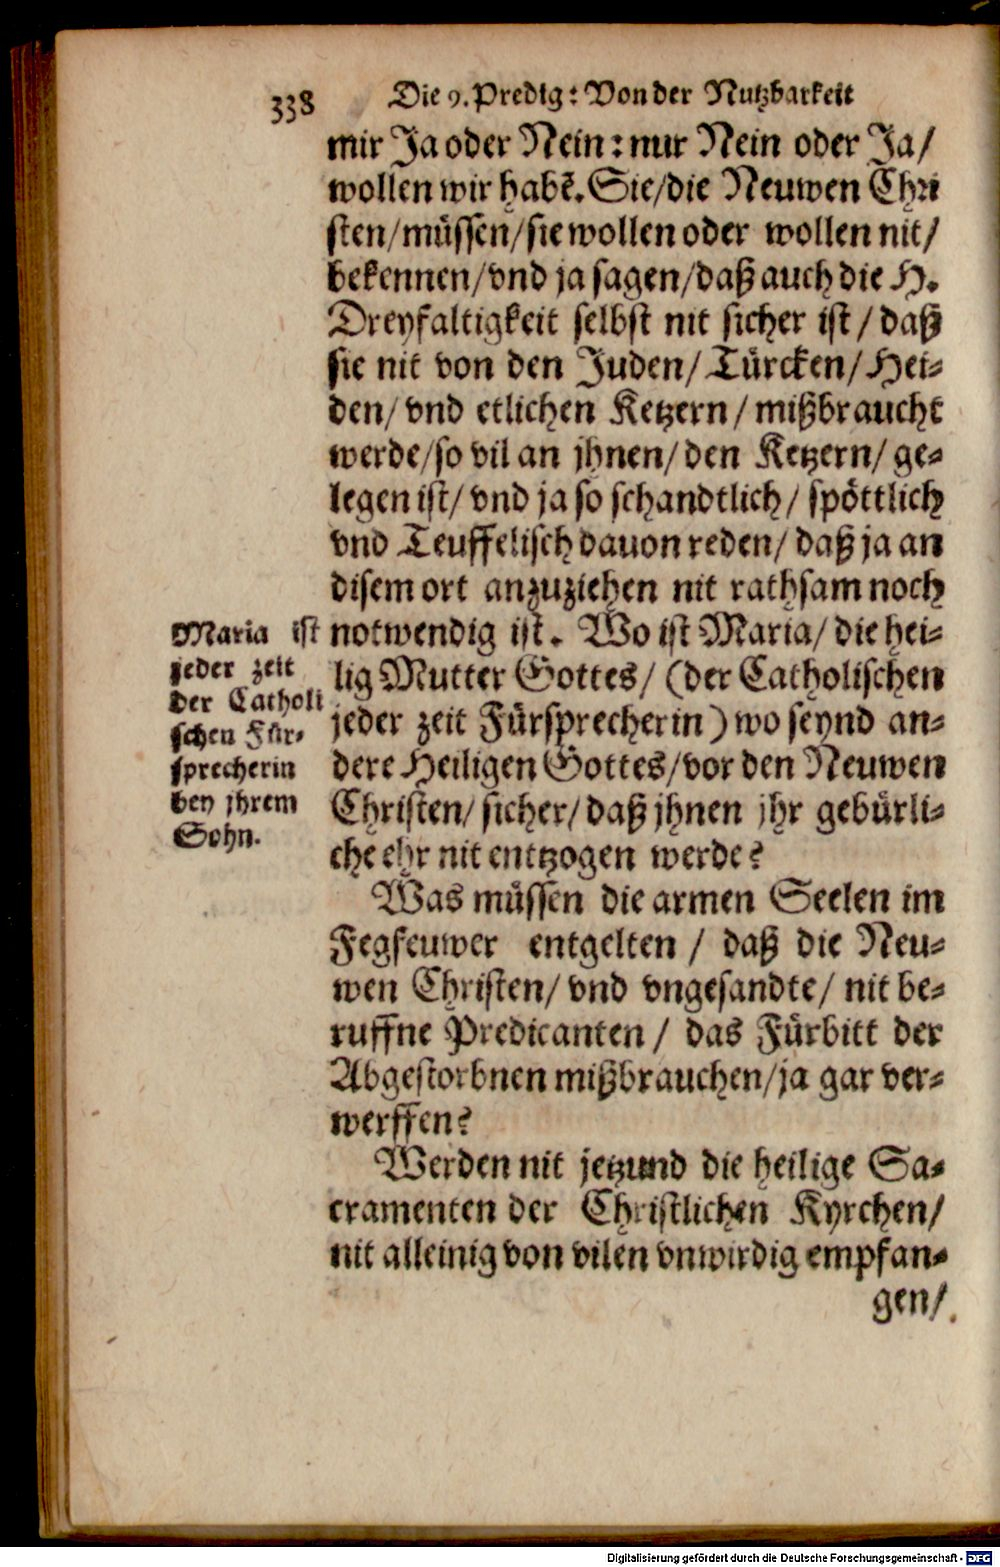 338 Die 9. Predig: Von der Nutzbarkeit
mir Ja oder Nein: nur Nein oder Ja/
wollen wir habẽ. Sie/die Neuwen Chri
sten/müssen/sie wollen oder wollen nit/
bekennen/vnd ja sagen/daß auch die H.
Dreyfaltigkeit selbst nit sicher ist/daß
sie nit von den Juden/Türcken/Hei-
den/vnd etlichen Ketzern/mißbraucht
werde/so vil an jhnen/den Ketzern/ge-
legen ist/vnd ja so schandtlich/spöttlich
vnd Teuffelisch dauon reden/daß ja an
disem ort anzuziehen nit rathsam noch
notwendig ist. Wo ist Maria/die hei-
lig Mutter Gottes/(der Catholischen
jeder zeit Fürsprecherin) wo seynd an-
dere Heiligen Gottes/vor den Neuwen
Christen/sicher/daß jhnen jhr gebürli-
che ehr nit entzogen werde?
Maria ist
jeder zeit
der Catholi
schen Für-
sprecherin
bey jhrem
Sohn.
Was müssen die armen Seelen im
Fegfeuwer entgelten/daß die Neu-
wen Christen/vnd vngesandte/nit be-
ruffne Predicanten/das Fürbitt der
Abgestorbnen mißbrauchen/ja gar ver-
werffen?
Werden nit jetzund die heilige Sa-
cramenten der Christlichen Kyrchen/
nit alleinig von vilen vnwirdig empfan-
gen/
Digitalisierung gefördert durch die Deutsche Forschungsgemeinschaft - DFG